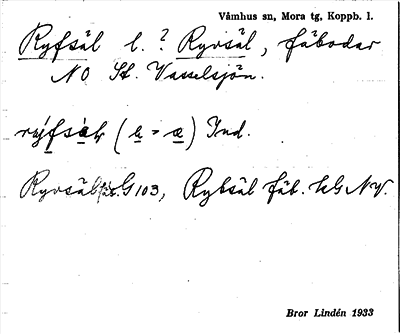 Våmhus sn, Mora tg, Koppb. l.
Ryfsäl l. ? Ryvsäl, fäbodar
NO St. Vasselsjön.
(e = æ) Ind.
Ryvsäl G 103, Rybsäl fäb. KG NV.
Bror Lindén 1933